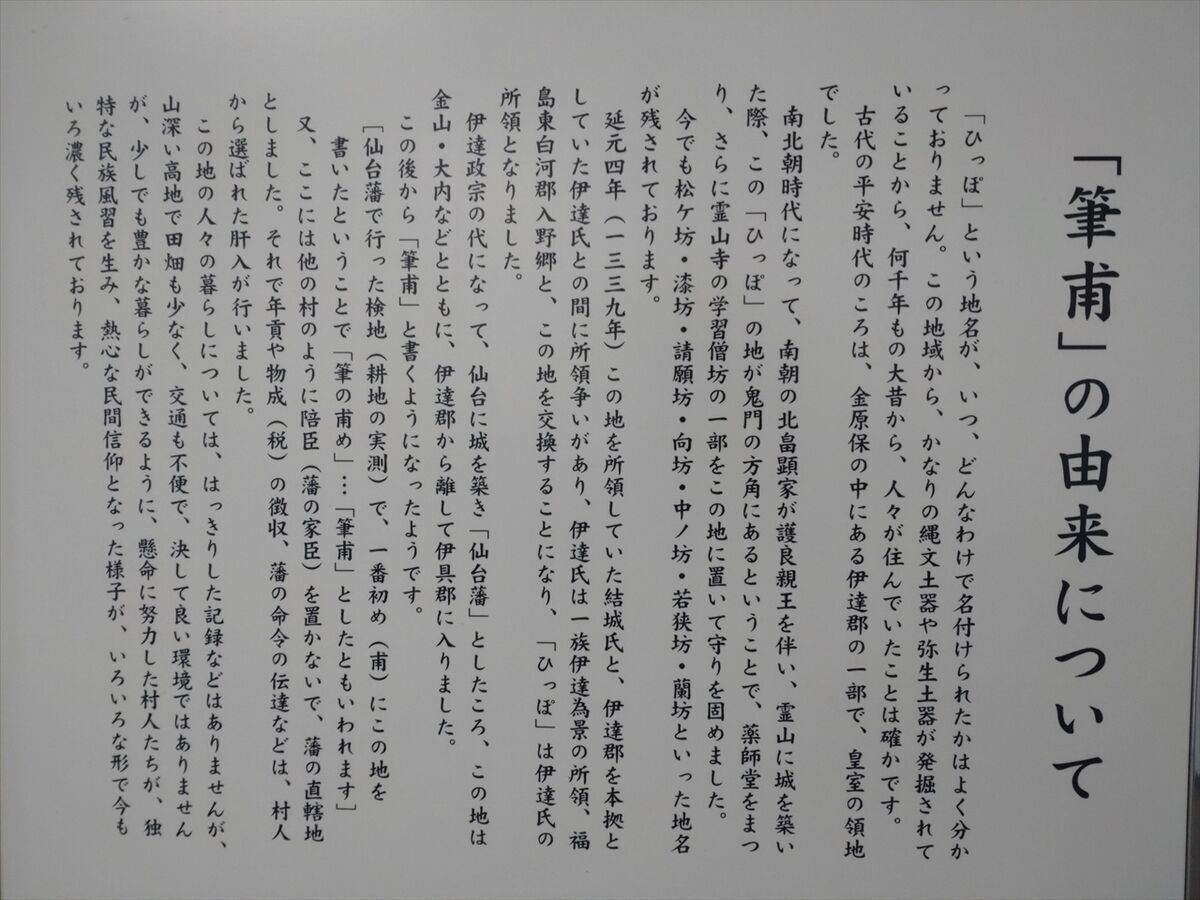 「筆甫」の由来について
「ひっぽ」という地名が、いつ、どんなわけで名付けられたかはよく分か
っておりません。この地域から、かなりの縄文土器や弥生土器が発掘されて
いることから、何千年もの大昔から、人々が住んでいたことは確かです。
古代の平安時代のころは、金原保の中にある伊達郡の一部で、皇室の領地
でした。
南北朝時代になって、南朝の北畠顕家が護良親王を伴い、霊山に城を築い
た際、この「ひっぽ」の地が鬼門の方角にあるということで、薬師堂をまつ
り、さらに霊山寺の学習僧坊の一部をこの地に置いて守りを固めました。
今でも松ケ坊・漆坊・請願坊・向坊・中ノ坊・若狭坊・蘭坊といった地名
が残されております。
延元四年（一三三九年）この地を所領していた結城氏と、伊達郡を本拠と
していた伊達氏との間に所領争いがあり、伊達氏は一族伊達為景の所領、福
島東白河郡入野郷と、この地を交換することになり、「ひっぽ」は伊達氏の
所領となりました。
伊達政宗の代になって、仙台に城を築き「仙台藩」としたころ、この地は
金山・大内などとともに、伊達郡から離して伊具郡に入りました。
この後から「筆甫」と書くようになったようです。
「仙台藩で行った検地（耕地の実測）で、一番初め（甫）にこの地を
書いたということで「筆の甫め」…「筆甫」としたともいわれます」
又、ここには他の村のように陪臣（藩の家臣）を置かないで、藩の直轄地
としました。それで年貢や物成（税）の徴収、藩の命令の伝達などは、村人
から選ばれた肝入が行いました。
この地の人々の暮らしについては、はっきりした記録などはありませんが、
山深い高地で田畑も少なく、交通も不便で、決して良い環境ではありません
が、少しでも豊かな暮らしができるように、懸命に努力した村人たちが、独
特な民族風習を生み、熱心な民間信仰となった様子が、いろいろな形で今も
いろ濃く残されております。